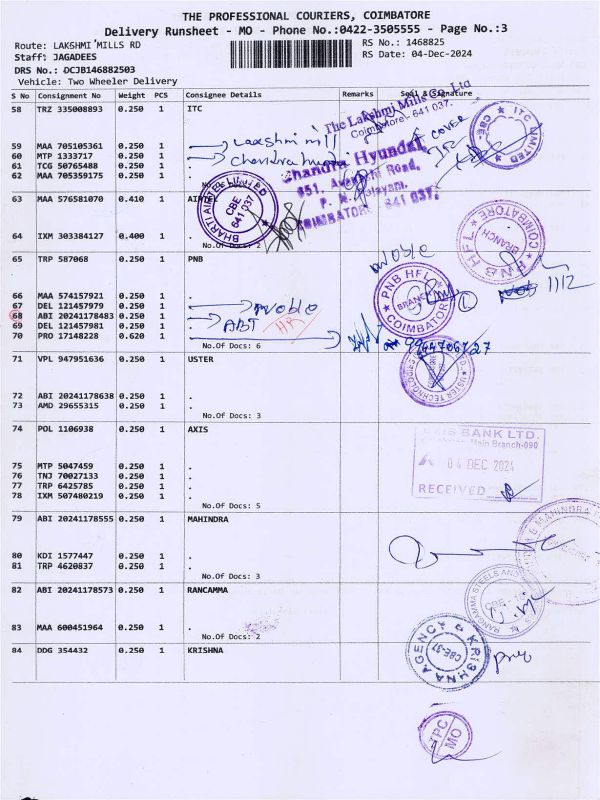 THE PROFESSIONAL COURIERS, COIMBATORE
Delivery Runsheet - MO - Phone No.:0422-3505555 - Page No.:3
Route: LAKSHMI MILLS RD
RS No.: 1468825
Staff: JAGADEES
RS Date: 04-Dec-2024
DRS No.: DCJB146882503
Vehicle: Two Wheeler Delivery
S No Consignment No Weight PCS Consignee Details Remarks Seal & Signature
58 TRZ 335008893 0.250 1 ITC
The Lakshmi Mills Co. Ltd
Coimbatore - 641 037.
ITC LIMITED CBE
COVER
59 MAA 705105361 0.250 1 . Lakshmi mill
60 MTP 1333717 0.250 1 .
61 TCG 50765488 0.250 1 .
62 MAA 705359175 0.250 1 .
Chandra Hyundai
COIMBATORE 641 037.
63 MAA 576581070 0.410 1
BHARTI AIRTEL LIMITED CBE 641 037
64 IXM 303384127 0.400 1 .
No.Of Docs: 2
PNB HFL BRANCH COIMBATORE
65 TRP 587068 0.250 1 PNB
noble
PNB HFL BRANCH COIMBATORE
66 MAA 574157921 0.250 1 .
67 DEL 121457979 0.250 1 . noble
68 ABI 20241178483 0.250 1 . ABT
69 DEL 121457981 0.250 1 .
70 PRO 17148228 0.620 1 .
No.Of Docs: 6
71 VPL 947951636 0.250 1 USTER
72 ABI 20241178638 0.250 1 .
73 AMD 29655315 0.250 1 .
No.Of Docs: 3
74 POL 1106938 0.250 1 AXIS
AXIS BANK LTD.
Main Branch-090
04 DEC 2024
RECEIVED
75 MTP 5047459 0.250 1 .
76 TNJ 70027133 0.250 1 .
77 TRP 6425785 0.250 1 .
78 IXM 507480219 0.250 1 .
No.Of Docs: 5
79 ABI 20241178555 0.250 1 MAHINDRA
80 KDI 1577447 0.250 1 .
81 TRP 4620837 0.250 1 .
No.Of Docs: 3
82 ABI 20241178573 0.250 1 RANCAMMA
83 MAA 600451964 0.250 1 .
No.Of Docs: 2
84 DDG 354432 0.250 1 KRISHNA
KRISHNA AGENCY CBE-37
TPC MO